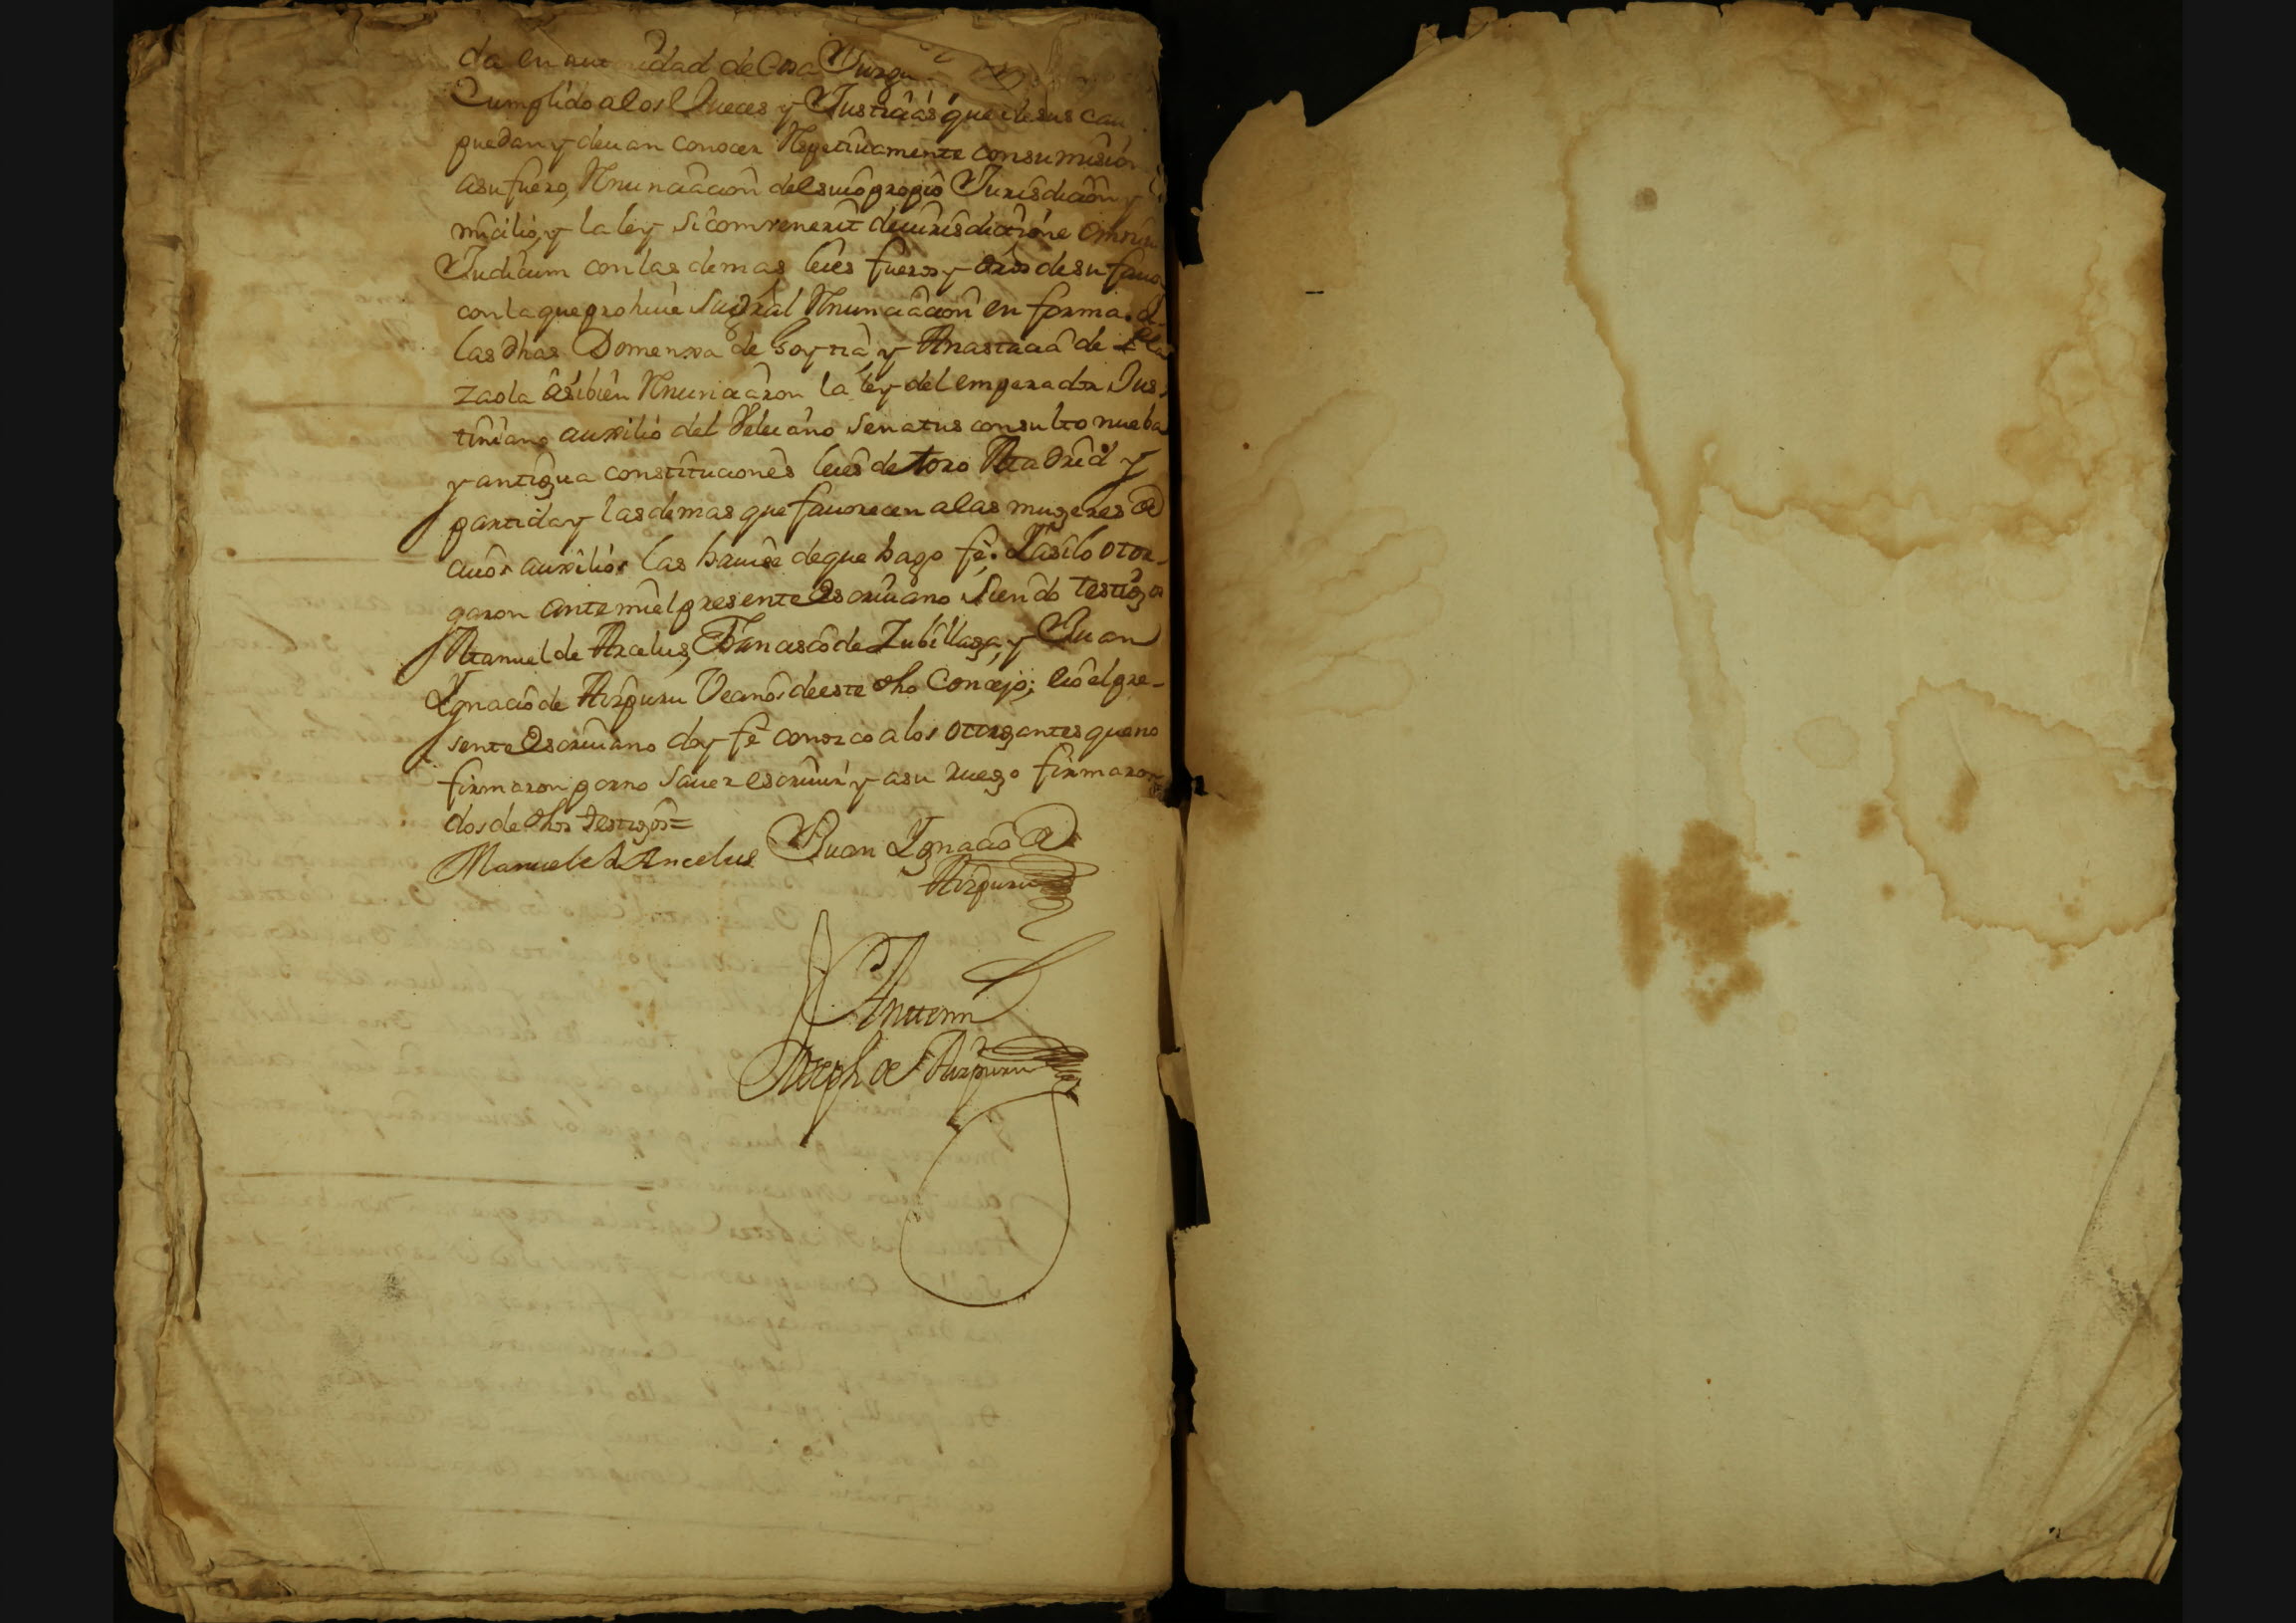 da en autoridad de Cosa Juzga
Cumplido a los Jueces y Justicias que de sus cau
puedan y deuan conocer Respetiuamente con sumision
a su fuero, Renunciacion del suio propio Jurisdicion y
micilio, y la ley si combenerit de iurisdictione omniu
Judicum con las demas leies fueros y dros de su fauor
con la que prohiue su gral Renunciacion en forma. I
las dhas Domenxa de Goytia, y Anastacia de
zaola asibien Renunciaron la ley del emperador Jus-
tiniano auxilio del Veleiano senatus consulto nueba
y antigua constituciones leies de toro Madrid y
partida y las demas que fauorecen a las mugeres de
cuios auxilios las hauise de que hago fe. I asi lo otor-
garon ante mi el presente Escriuano siendo testigos
Manuel de Arcelus, Francisco de Zubillaga, y Juan
Ygnacio de Aizpuru Vecinos de este dho Concejo; e io el pre-
sente Escriuano doy fe conozco a los otorgantes que no
firmaron por no sauer escriuir y a su ruego firmaron
dos de dhos testigos=
Manuel de Arcelus Juan Ygnacio de
Aizpuru
Ante mi
Joseph de Aizpuru